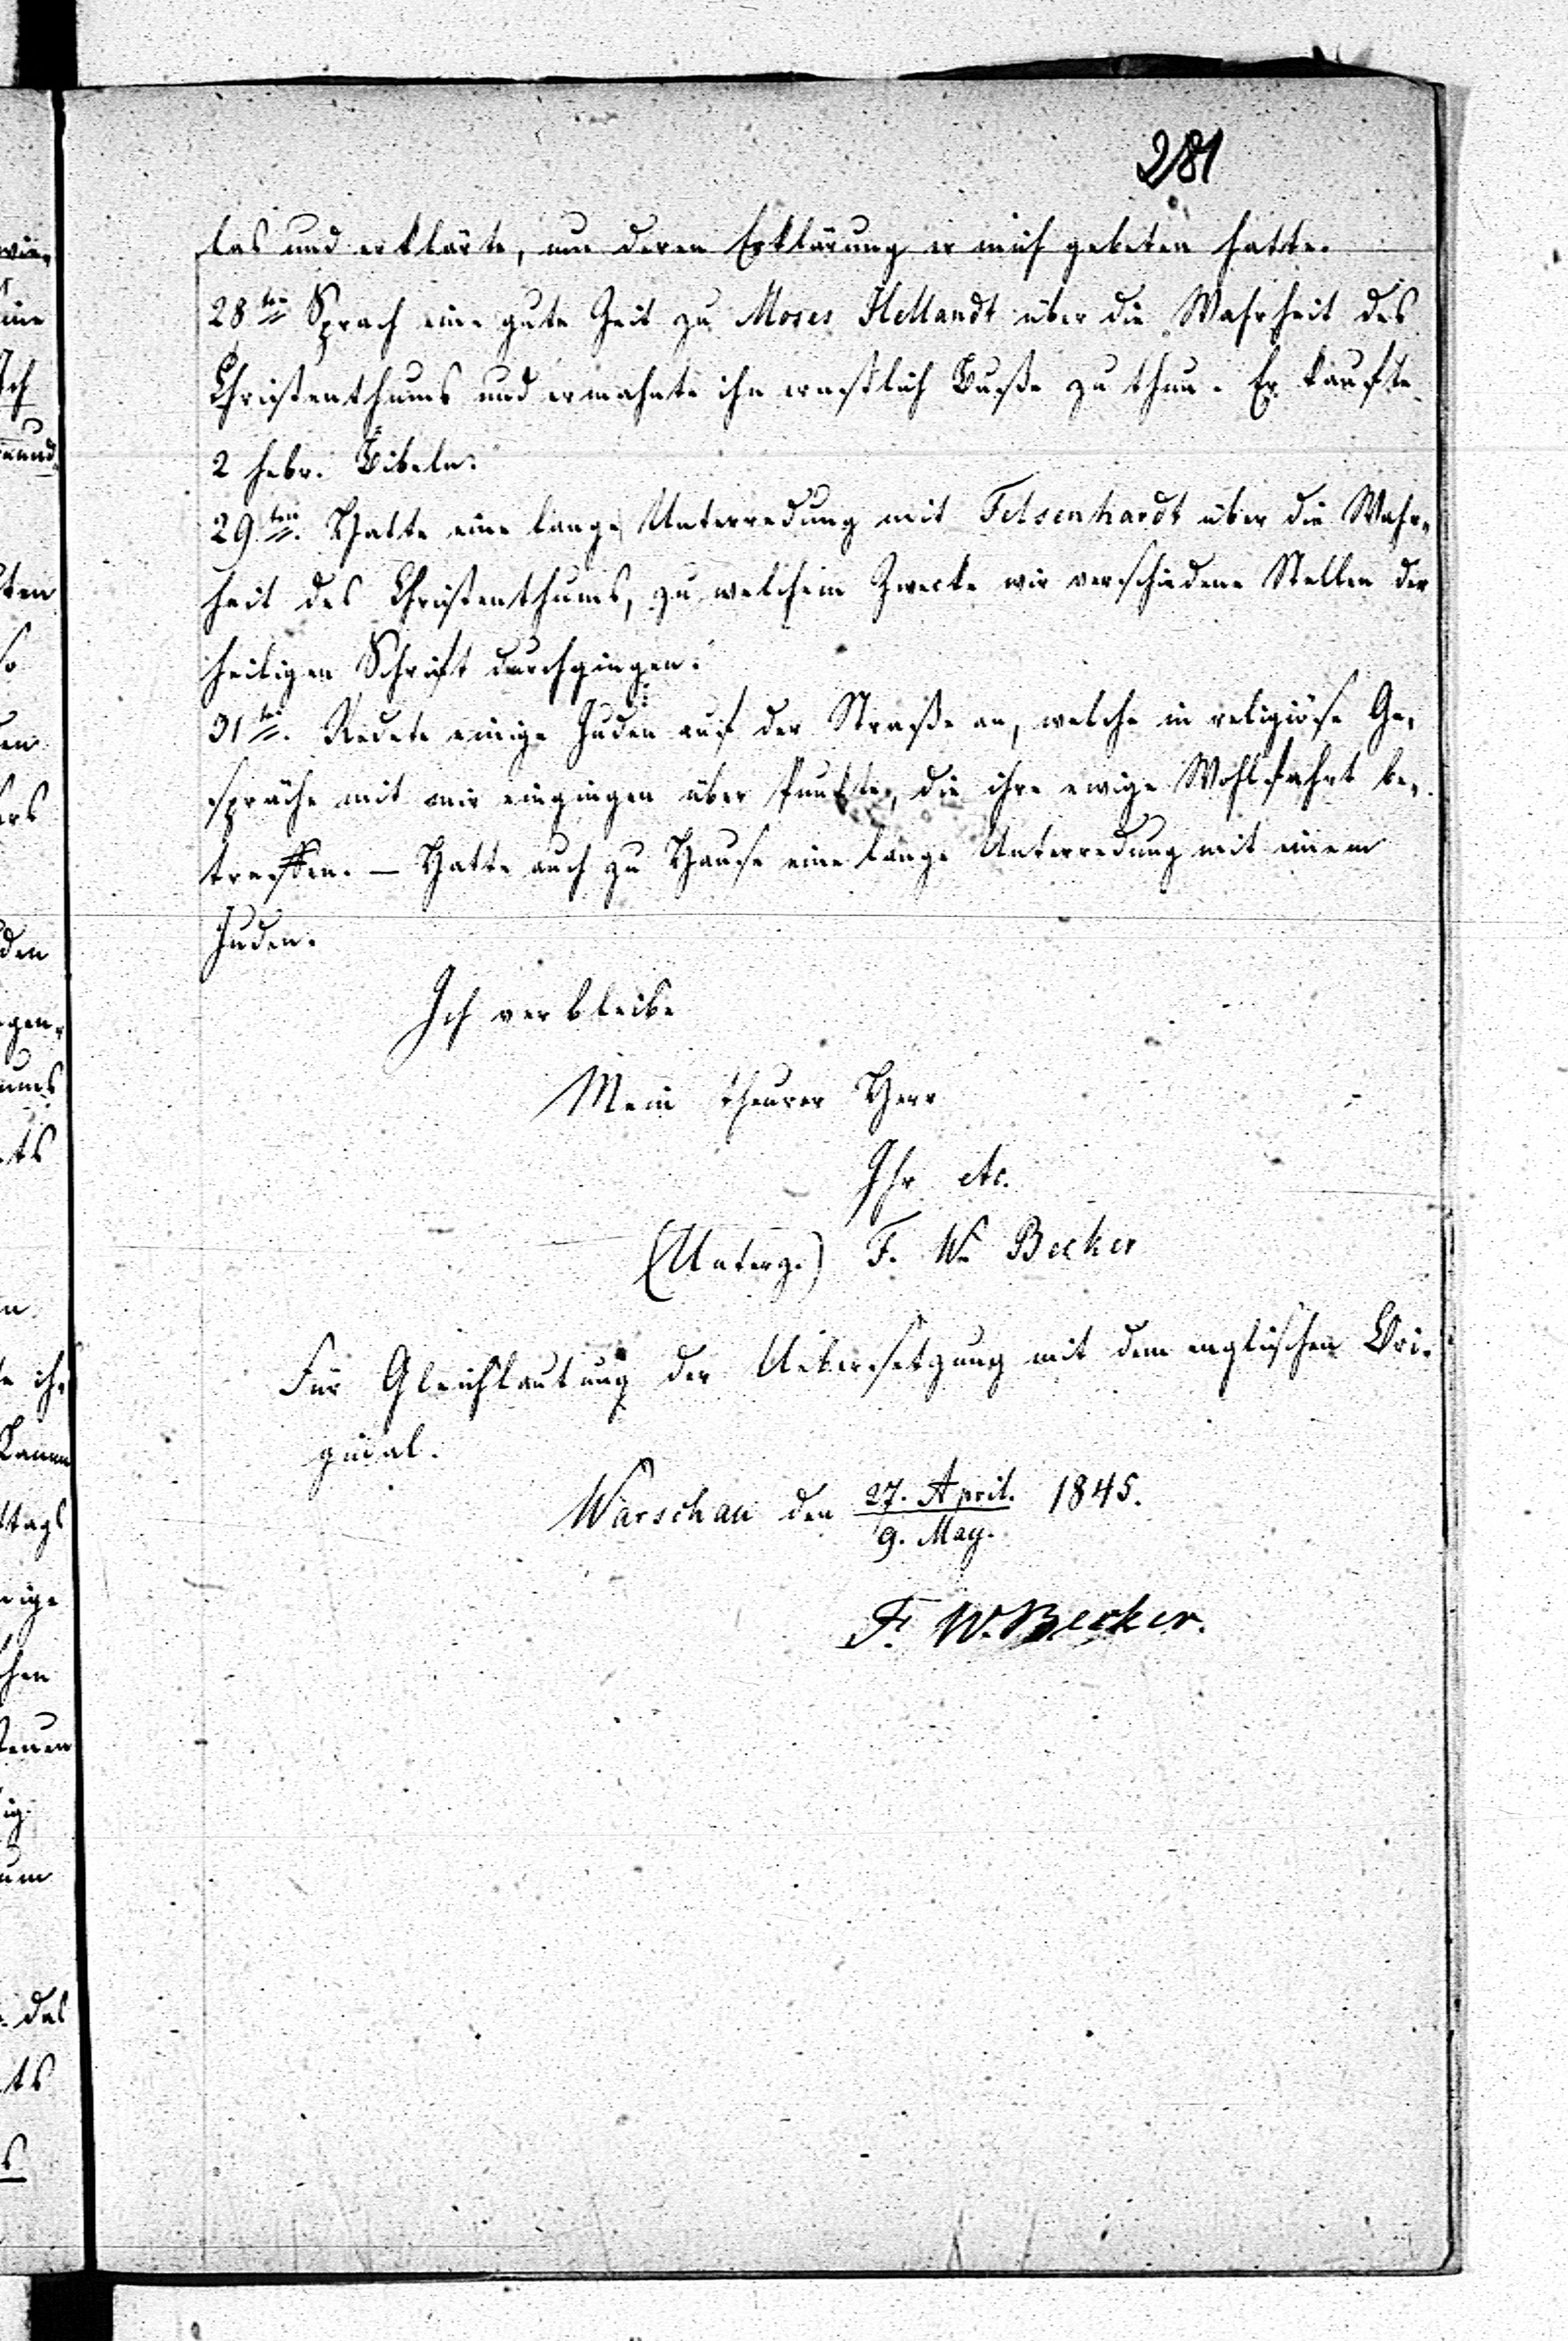 281
las und erklärte, um deren Erklärung er mich gebeten hatte.
28ten Sprach eine gute Zeit zu Moses Hellandt über die Wahrheit des
Christenthums und ermahnte ihn ernstlich Buße zu thun. Er kaufte
2 hebr. Bibeln.
29ten. Hatte eine lange Unterredung mit Felsenhardt über die Wahr-
heit des Christenthums, zu welchem Zwecke wir verschiedene Stellen der
heiligen Schrift durchgingen.
31ten. Redete einige Juden auf der Straße an, welche in religiöse Ge-
spräche mit mir eingingen über Punkte, die ihre ewige Wohlfahrt be-
treffen. — Hatte auch zu Hause eine lange Unterredung mit einem
Juden.
Ich verbleibe
Mein theurer Herr
Ihr etc.
(Unterz.) F. W. Becker
Für Gleichlautung der Uebersetzung mit dem englischen Ori-
ginal.
Warschau den 27. April. 1845.
9. May.
F. W. Becker.